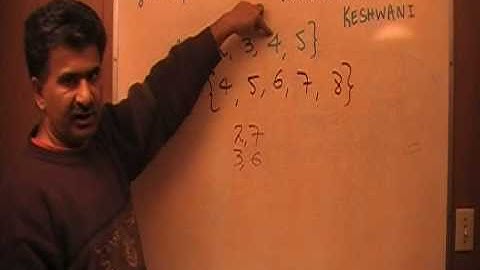 KESHWANI
, 3, 4, 5}
{4, 5, 6, 7, 8}
2, 7
3, 6